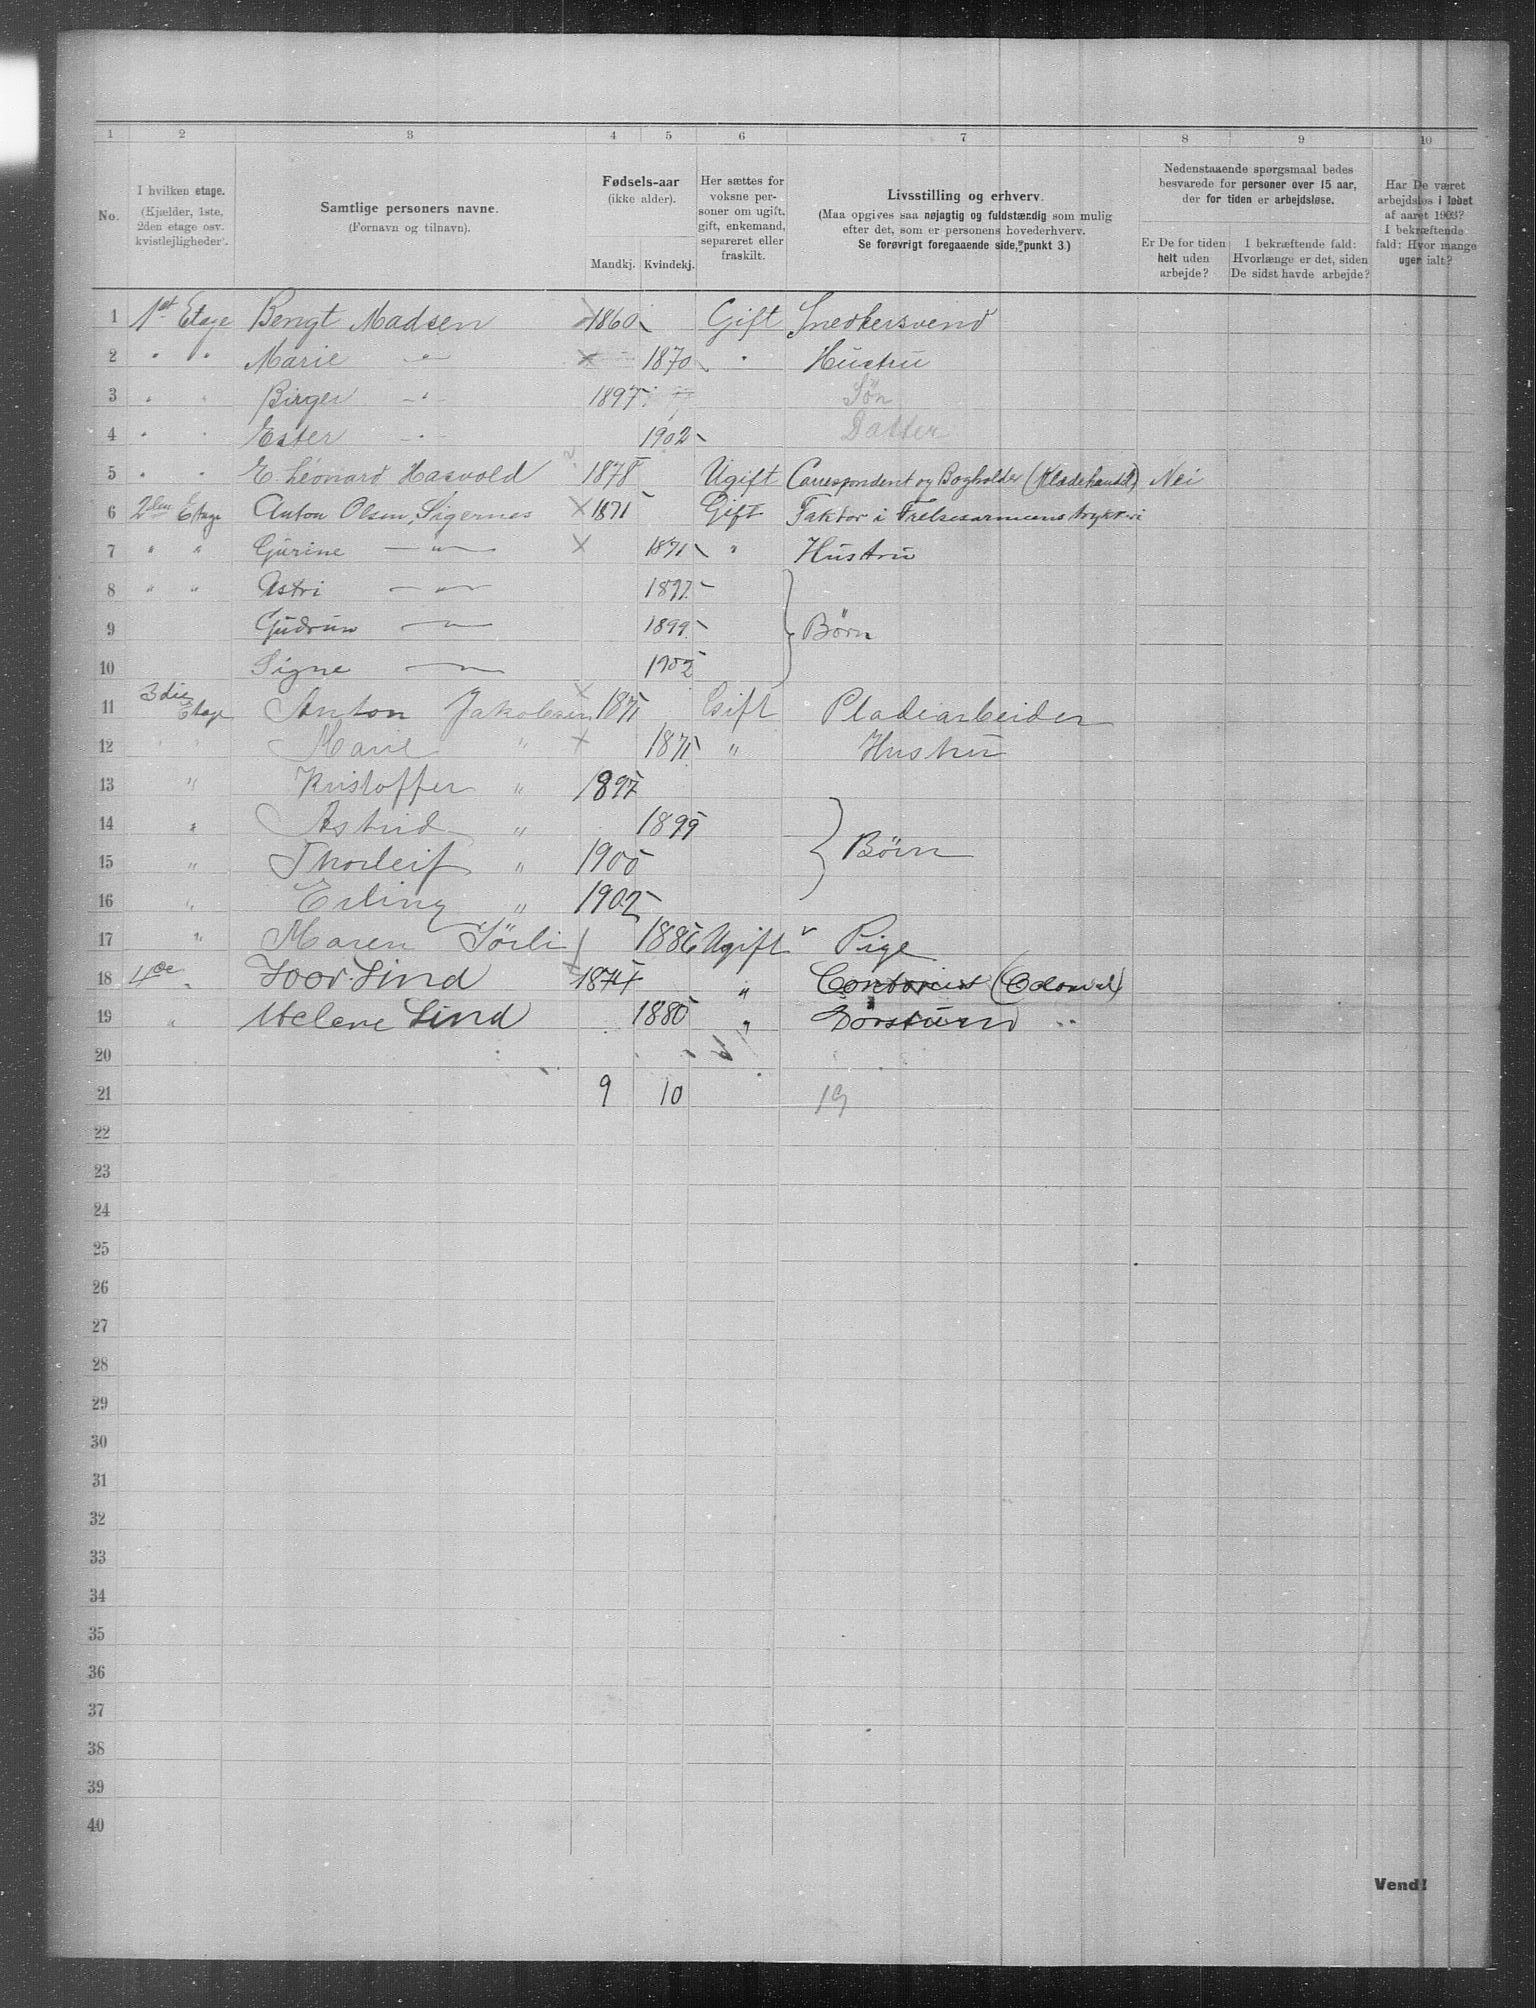 1 2 3 4 5 6 7 8 9 10
No.
I hvilken etage.
(Kjælder, 1ste,
2den etage osv.
kvistlejligheder).
Samtlige personers navne.
(Fornavn og tilnavn).
Fødsels-aar
(ikke alder).
Mandkj. Kvindekj.
Her sættes for
voksne per-
soner om ugift,
gift, enkemand,
separeret eller
fraskilt.
Livsstilling og erhverv.
(Maa opgives saa nøjagtig og fuldstændig som mulig
efter det, som er personens hovederhverv.
Se forøvrigt foregaaende side, punkt 3.)
Nedenstaaende spørgsmaal bedes
besvarede for personer over 15 aar,
der for tiden er arbejdsløse.
Er De for tiden
helt uden
arbejde?
I bekræftende fald:
Hvorlænge er det, siden
De sidst havde arbejde?
Har De været
arbejdsløs i løbet
af aaret 1903?
I bekræftende
fald: Hvor mange
uger ialt?
1 1st Etage Bengt Madsen 1860 Gift Snedkersvend
2 " " Marie " 1870 " Hustru
3 " " Birger " 1897 Søn
4 " " Ester " 1902 Datter
5 " " E. Leonard Hasvold 1878 Ugift Correspondent og Bogholder (Kladehandel) Nei
6 2den Etage Anton Olsen, Sigernes 1871 Gift Faktor i Frelsesarmeens trykkeri
7 " " Gurine " 1871 " Hustru
8 " " Astri " 1897
9 Gudrun " 1899 Børn
10 Signe 1902
11 3die Etage Anton Jakobsen 1871 Gift Pladearbeider
12 " " Marie " 1871 " Hustru
13 " Kristoffer " 1897
14 " Astrid " 1899 Børn
15 " Thorleif " 1900
16 " Erling " 1902
17 " Maren Sörli 1886 Ugift Pige
18 4de " Ivar Lind 1874 " Contorist (Colonial)
19 " Helene Lind 1880 "
20
21 9 10 19
22
23
24
25
26
27
28
29
30
31
32
33
34
35
36
37
38
39
40
Vend!